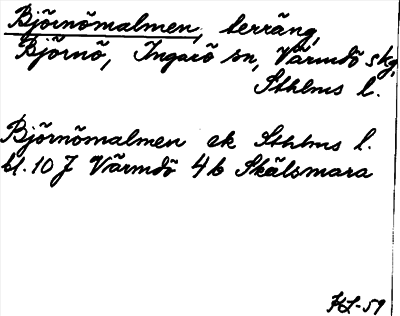 Björnömalmen, terräng,
Björnö, Ingarö sn, Värmdö skg,
Sthlms l.
Björnömalmen ek Sthlms l.
bl. 10 J Värmdö 4 b Skälsmara
HS-59